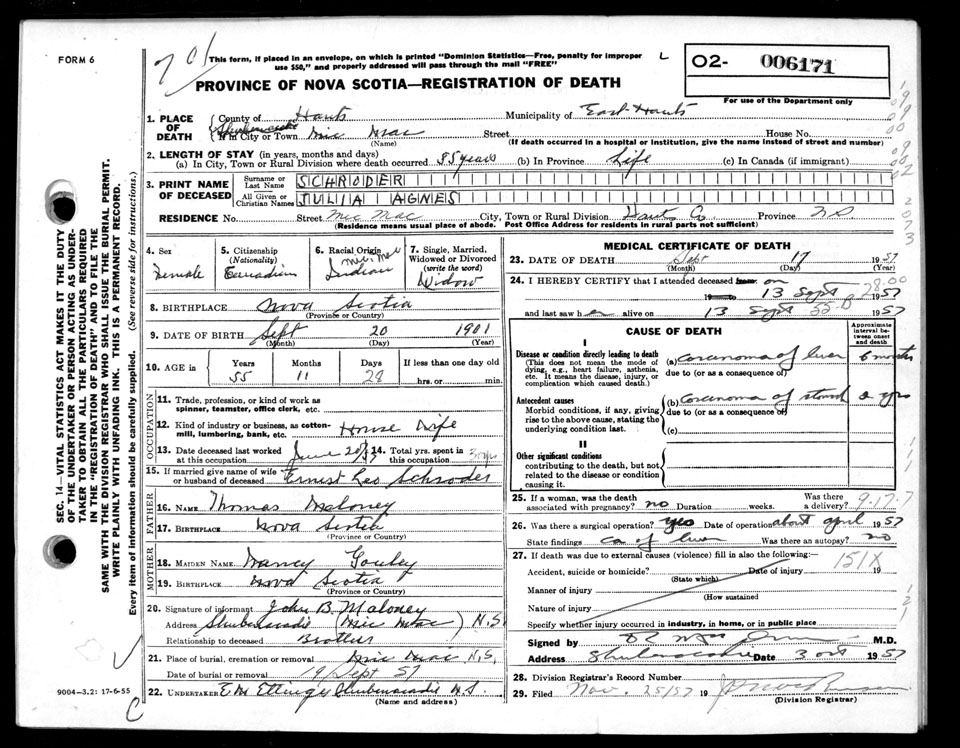 FORM 6
701
This form, if placed in an envelope, on which is printed "Dominion Statistics—Free, penalty for improper
use $50," and properly addressed will pass through the mail "FREE"
L
O2- 006171
For use of the Department only
PROVINCE OF NOVA SCOTIA—REGISTRATION OF DEATH
1. PLACE OF DEATH
County of Hants Municipality of East Hants
Shubenacadie
If in City or Town Mic Mac Street House No.
(Name) (If death occurred in a hospital or institution, give the name instead of street and number)
2. LENGTH OF STAY (in years, months and days)
(a) In City, Town or Rural Division where death occurred 55 years (b) In Province Life (c) In Canada (if immigrant)
3. PRINT NAME OF DECEASED
Surname or Last Name SCHRODER
All Given or Christian Names JULIA AGNES
RESIDENCE No. Street Mic Mac City, Town or Rural Division Hants Co Province N S
(Residence means usual place of abode. Post Office Address for residents in rural parts not sufficient)
4. Sex Female
5. Citizenship (Nationality) Canadian
6. Racial Origin Mic Mac Indian
7. Single, Married, Widowed or Divorced (write the word) Widow
8. BIRTHPLACE Nova Scotia
(Province or Country)
9. DATE OF BIRTH Sept 20 1901
(Month) (Day) (Year)
10. AGE in Years Months Days If less than one day old
55 11 28 hrs. or min.
OCCUPATION
11. Trade, profession, or kind of work as
spinner, teamster, office clerk, etc.
12. Kind of industry or business, as cotton-
mill, lumbering, bank, etc. House Wife
13. Date deceased last worked at this occupation June 20/57 14. Total yrs. spent in this occupation
15. If married give name of wife or husband of deceased Ernest Leo Schroder
FATHER
16. NAME Thomas Maloney
17. BIRTHPLACE Nova Scotia
(Province or Country)
MOTHER
18. MAIDEN NAME Nancy
19. BIRTHPLACE Nova Scotia
(Province or Country)
20. Signature of informant John B. Maloney
Address Shubenacadie (Mic Mac) N.S.
Relationship to deceased Brother
21. Place of burial, cremation or removal Mic Mac N.S.
Date of burial or removal 19 Sept 57
22. UNDERTAKER E M Ettinger Shubenacadie N.S.
(Name and address)
MEDICAL CERTIFICATE OF DEATH
23. DATE OF DEATH Sept 17 1957
(Month) (Day) (Year)
24. I HEREBY CERTIFY that I attended deceased from on
13 Sept 1957
and last saw her alive on 13 Sept 1957
CAUSE OF DEATH
Approximate interval between onset and death
I
Disease or condition directly leading to death (a) Carcinoma of liver 6 months
(This does not mean the mode of
dying, e.g., heart failure, asthenia, due to (or as a consequence of)
etc. It means the disease, injury, or
complication which caused death.)
Antecedent causes (b) Carcinoma of stomach 2 yrs
Morbid conditions, if any, giving due to (or as a consequence of)
rise to the above cause, stating the
underlying condition last. (c)
II
Other significant conditions
contributing to the death, but not
related to the disease or condition
causing it.
25. If a woman, was the death associated with pregnancy? no Duration weeks. Was there a delivery?
9.17.7
26. Was there a surgical operation? yes Date of operation about April 1957
State findings ca of liver Was there an autopsy? no
27. If death was due to external causes (violence) fill in also the following:—
151X
Accident, suicide or homicide? Date of injury 19
(State which)
Manner of injury
(How sustained
Nature of injury
Specify whether injury occurred in industry, in home, or in public place
Signed by M.D.
Address Shubenacadie Date 3 Oct 1957
28. Division Registrar's Record Number
29. Filed Nov. 25/57 19
(Division Registrar)
SEC. 14—VITAL STATISTICS ACT MAKES IT THE DUTY
OF THE UNDERTAKER OR PERSON ACTING AS UNDER-
TAKER TO OBTAIN ALL THE PARTICULARS REQUIRED
IN THE "REGISTRATION OF DEATH" AND TO FILE THE
SAME WITH THE DIVISION REGISTRAR WHO SHALL ISSUE THE BURIAL PERMIT.
WRITE PLAINLY WITH UNFADING INK. THIS IS A PERMANENT RECORD.
Every item of information should be carefully supplied. (See reverse side for instructions.)
9004—3.2: 17-6-55
C